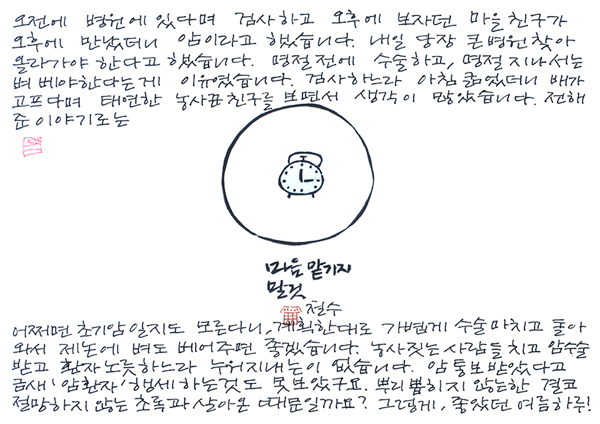 오전에 병원에 있다며 검사하고 오후에 보자던 마을친구가
오후에 만났더니 암이라고 했습니다. 내일 당장 큰병원 찾아
올라가야 한다고 했습니다. 명절 전에 수술하고, 명절 지나서는
벼 베야한다는게 이유였습니다. 검사하느라 아침 굶었더니 배가
고프다며 태연한 농사꾼친구를 보면서 생각이 많았습니다. 전해
준 이야기로는
마음 맡기지
말것
철수
어쩌면 초기암일지도 모른다니, 계획한대로 가볍게 수술 마치고 돌아
와서 제논에 벼도 베어주면 좋겠습니다. 농사짓는 사람들 치고 암수술
받고 환자 노릇하느라 누워지내는 이 없습니다. 암 통보 받았다고
금새 '암환자' 행세 하는것도 못보았구요. 뿌리 뽑히지 않는한 결코
절망하지 않는 초록과 살아온 때문일까요? 그렇게, 좋았던 여름하루!